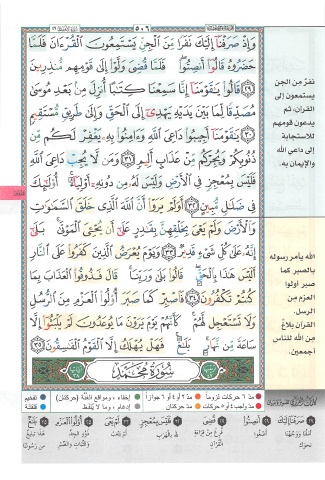 ٥٠٦
وَإِذْ صَرَفْنَآ إِلَيْكَ نَفَرًا مِّنَ ٱلْجِنِّ يَسْتَمِعُونَ ٱلْقُرْءَانَ فَلَمَّا
حَضَرُوهُ قَالُوٓا۟ أَنصِتُوا۟ فَلَمَّا قُضِىَ وَلَّوْا۟ إِلَىٰ قَوْمِهِم مُّنذِرِينَ
٢٩ قَالُوا۟ يَـٰقَوْمَنَآ إِنَّا سَمِعْنَا كِتَـٰبًا أُنزِلَ مِنۢ بَعْدِ مُوسَىٰ
مُصَدِّقًا لِّمَا بَيْنَ يَدَيْهِ يَهْدِىٓ إِلَى ٱلْحَقِّ وَإِلَىٰ طَرِيقٍ مُّسْتَقِيمٍ
٣٠ يَـٰقَوْمَنَآ أَجِيبُوا۟ دَاعِىَ ٱللَّهِ وَءَامِنُوا۟ بِهِۦ يَغْفِرْ لَكُم مِّن
ذُنُوبِكُمْ وَيُجِرْكُم مِّنْ عَذَابٍ أَلِيمٍ ٣١ وَمَن لَّا يُجِبْ دَاعِىَ ٱللَّهِ
فَلَيْسَ بِمُعْجِزٍ فِى ٱلْأَرْضِ وَلَيْسَ لَهُۥ مِن دُونِهِۦٓ أَوْلِيَآءُ أُو۟لَـٰٓئِكَ
فِى ضَلَـٰلٍ مُّبِينٍ ٣٢ أَوَلَمْ يَرَوْا۟ أَنَّ ٱللَّهَ ٱلَّذِى خَلَقَ ٱلسَّمَـٰوَٰتِ
وَٱلْأَرْضَ وَلَمْ يَعْىَ بِخَلْقِهِنَّ بِقَـٰدِرٍ عَلَىٰٓ أَن يُحْـِۧىَ ٱلْمَوْتَىٰ بَلَىٰٓ
إِنَّهُۥ عَلَىٰ كُلِّ شَىْءٍ قَدِيرٌ ٣٣ وَيَوْمَ يُعْرَضُ ٱلَّذِينَ كَفَرُوا۟ عَلَى ٱلنَّارِ
أَلَيْسَ هَـٰذَا بِٱلْحَقِّ قَالُوا۟ بَلَىٰ وَرَبِّنَا قَالَ فَذُوقُوا۟ ٱلْعَذَابَ بِمَا
كُنتُمْ تَكْفُرُونَ ٣٤ فَٱصْبِرْ كَمَا صَبَرَ أُو۟لُوا۟ ٱلْعَزْمِ مِنَ ٱلرُّسُلِ
وَلَا تَسْتَعْجِل لَّهُمْ كَأَنَّهُمْ يَوْمَ يَرَوْنَ مَا يُوعَدُونَ لَمْ يَلْبَثُوٓا۟ إِلَّا
سَاعَةً مِّن نَّهَارٍۭ بَلَـٰغٌ فَهَلْ يُهْلَكُ إِلَّا ٱلْقَوْمُ ٱلْفَـٰسِقُونَ ٣٥
سُورَةُ مُحَمَّد
نفرٌ من الجن
يستمعون إلى
القرآن، ثم
يدعون قومهم
للاستجابة
إلى داعي الله
والإيمان به.
الله يأمر رسوله
بالصبر كما
صبر أولوا
العزم من
الرسل.
القرآن بلاغ
من الله للناس
أجمعين.
مد ٦ حركات لزوماً
مد ٢ أو ٤ أو ٦ جوازاً
إخفاء، ومواقع الغنّة (حركتان)
تفخيم
مد واجب ٤ أو ٥ حركات
مد حركتان
إدغام، وما لا يُلفَظ
قلقلة